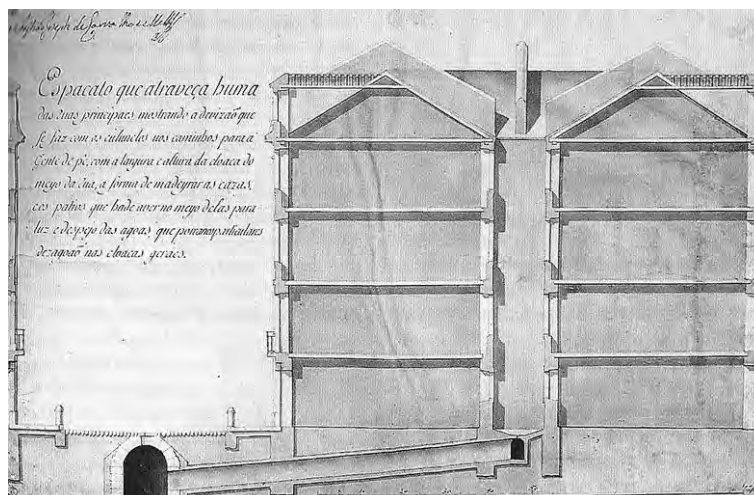 Joseph de Carvalho e Mello
Espacato que atraveça huma
das ruas principaes mostrando a devizaõ que
se faz com os culunelos nos caminhos para a
Gente de pé, com a largura e altura da cloaca do
meyo da rua, a forma de madeyrar as cazas,
e os patios que hade aver no meyo delas para
luz e despejo das agoas que por canos particulares
dezagoaõ nas cloacas geraes.